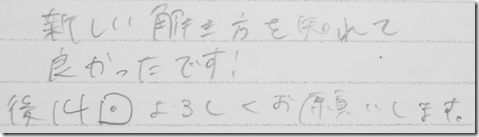 新しい解き方を知れて
良かったです!
後14回よろしくお願いします。